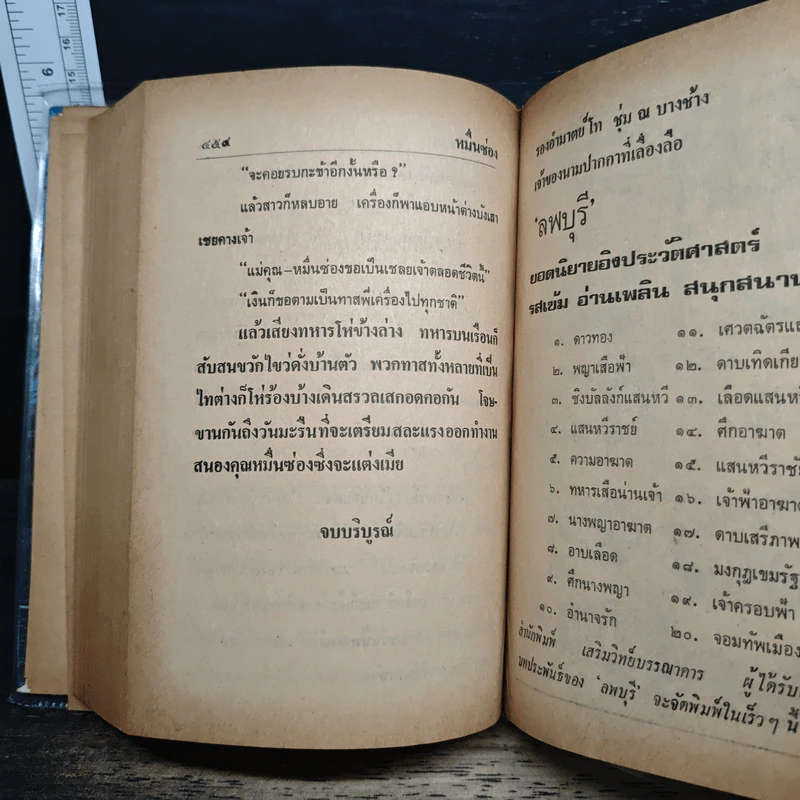 ๔๕๙ หมื่นซ่อง
“จะคอยรบกะข้าอีกงั้นหรือ ?”
แล้วสาวก็หลบอาย เครื่องก็พาแอบหน้าต่างบังเสา
เชยคางเจ้า
“แม่คุณ–หมื่นซ่องขอเป็นเชลยเจ้าตลอดชีวิตนี้”
“เงินก็ขอตามเป็นทาสพี่เครื่องไปทุกชาติ”
แล้วเสียงทหารโห่ข้างล่าง ทหารบนเรือนก็
สับสนขวักไขว่ดั่งบ้านตัว พวกทาสทั้งหลายที่เป็น
ไทต่างก็โห่ร้องบ้างเดินสรวลเสกอดคอกัน โจษ-
ขานกันถึงวันมะรืนที่จะเตรียมสละแรงออกทำงาน
สนองคุณหมื่นซ่องซึ่งจะแต่งเมีย
จบบริบูรณ์
รองอำมาตย์โท ชุ่ม ณ บางช้าง
เจ้าของนามปากกาที่เลื่องลือ
‘ลพบุรี’
ยอดนิยายอิงประวัติศาสตร์
รสเข้ม อ่านเพลิน สนุกสนาน
๑. ดาวทอง ๑๑. เศวตฉัตร
๒. พญาเสือฟ้า ๑๒. ดาบเทิดเกีย
๓. ชิงบัลลังก์แสนหวี ๑๓. เลือดแสนห
๔. แสนหวีราชย์ ๑๔. ศึกอาฆาต
๕. ความอาฆาต ๑๕. แสนหวีราชั
๖. ทหารเสือน่านเจ้า ๑๖. เจ้าฟ้าอาฆา
๗. นางพญาอาฆาต ๑๗. ดาบเสรีภาพ
๘. อาบเลือด ๑๘. มงกุฎเขมรัฐ
๙. ศึกนางพญา ๑๙. เจ้าครอบฟ้า
๑๐. อำนาจรัก ๒๐. จอมทัพเมือง
สำนักพิมพ์ เสริมวิทย์บรรณาคาร ผู้ได้รับ
บทประพันธ์ของ ‘ลพบุรี’ จะจัดพิมพ์ในเร็วๆ นี้
6
17
16
15